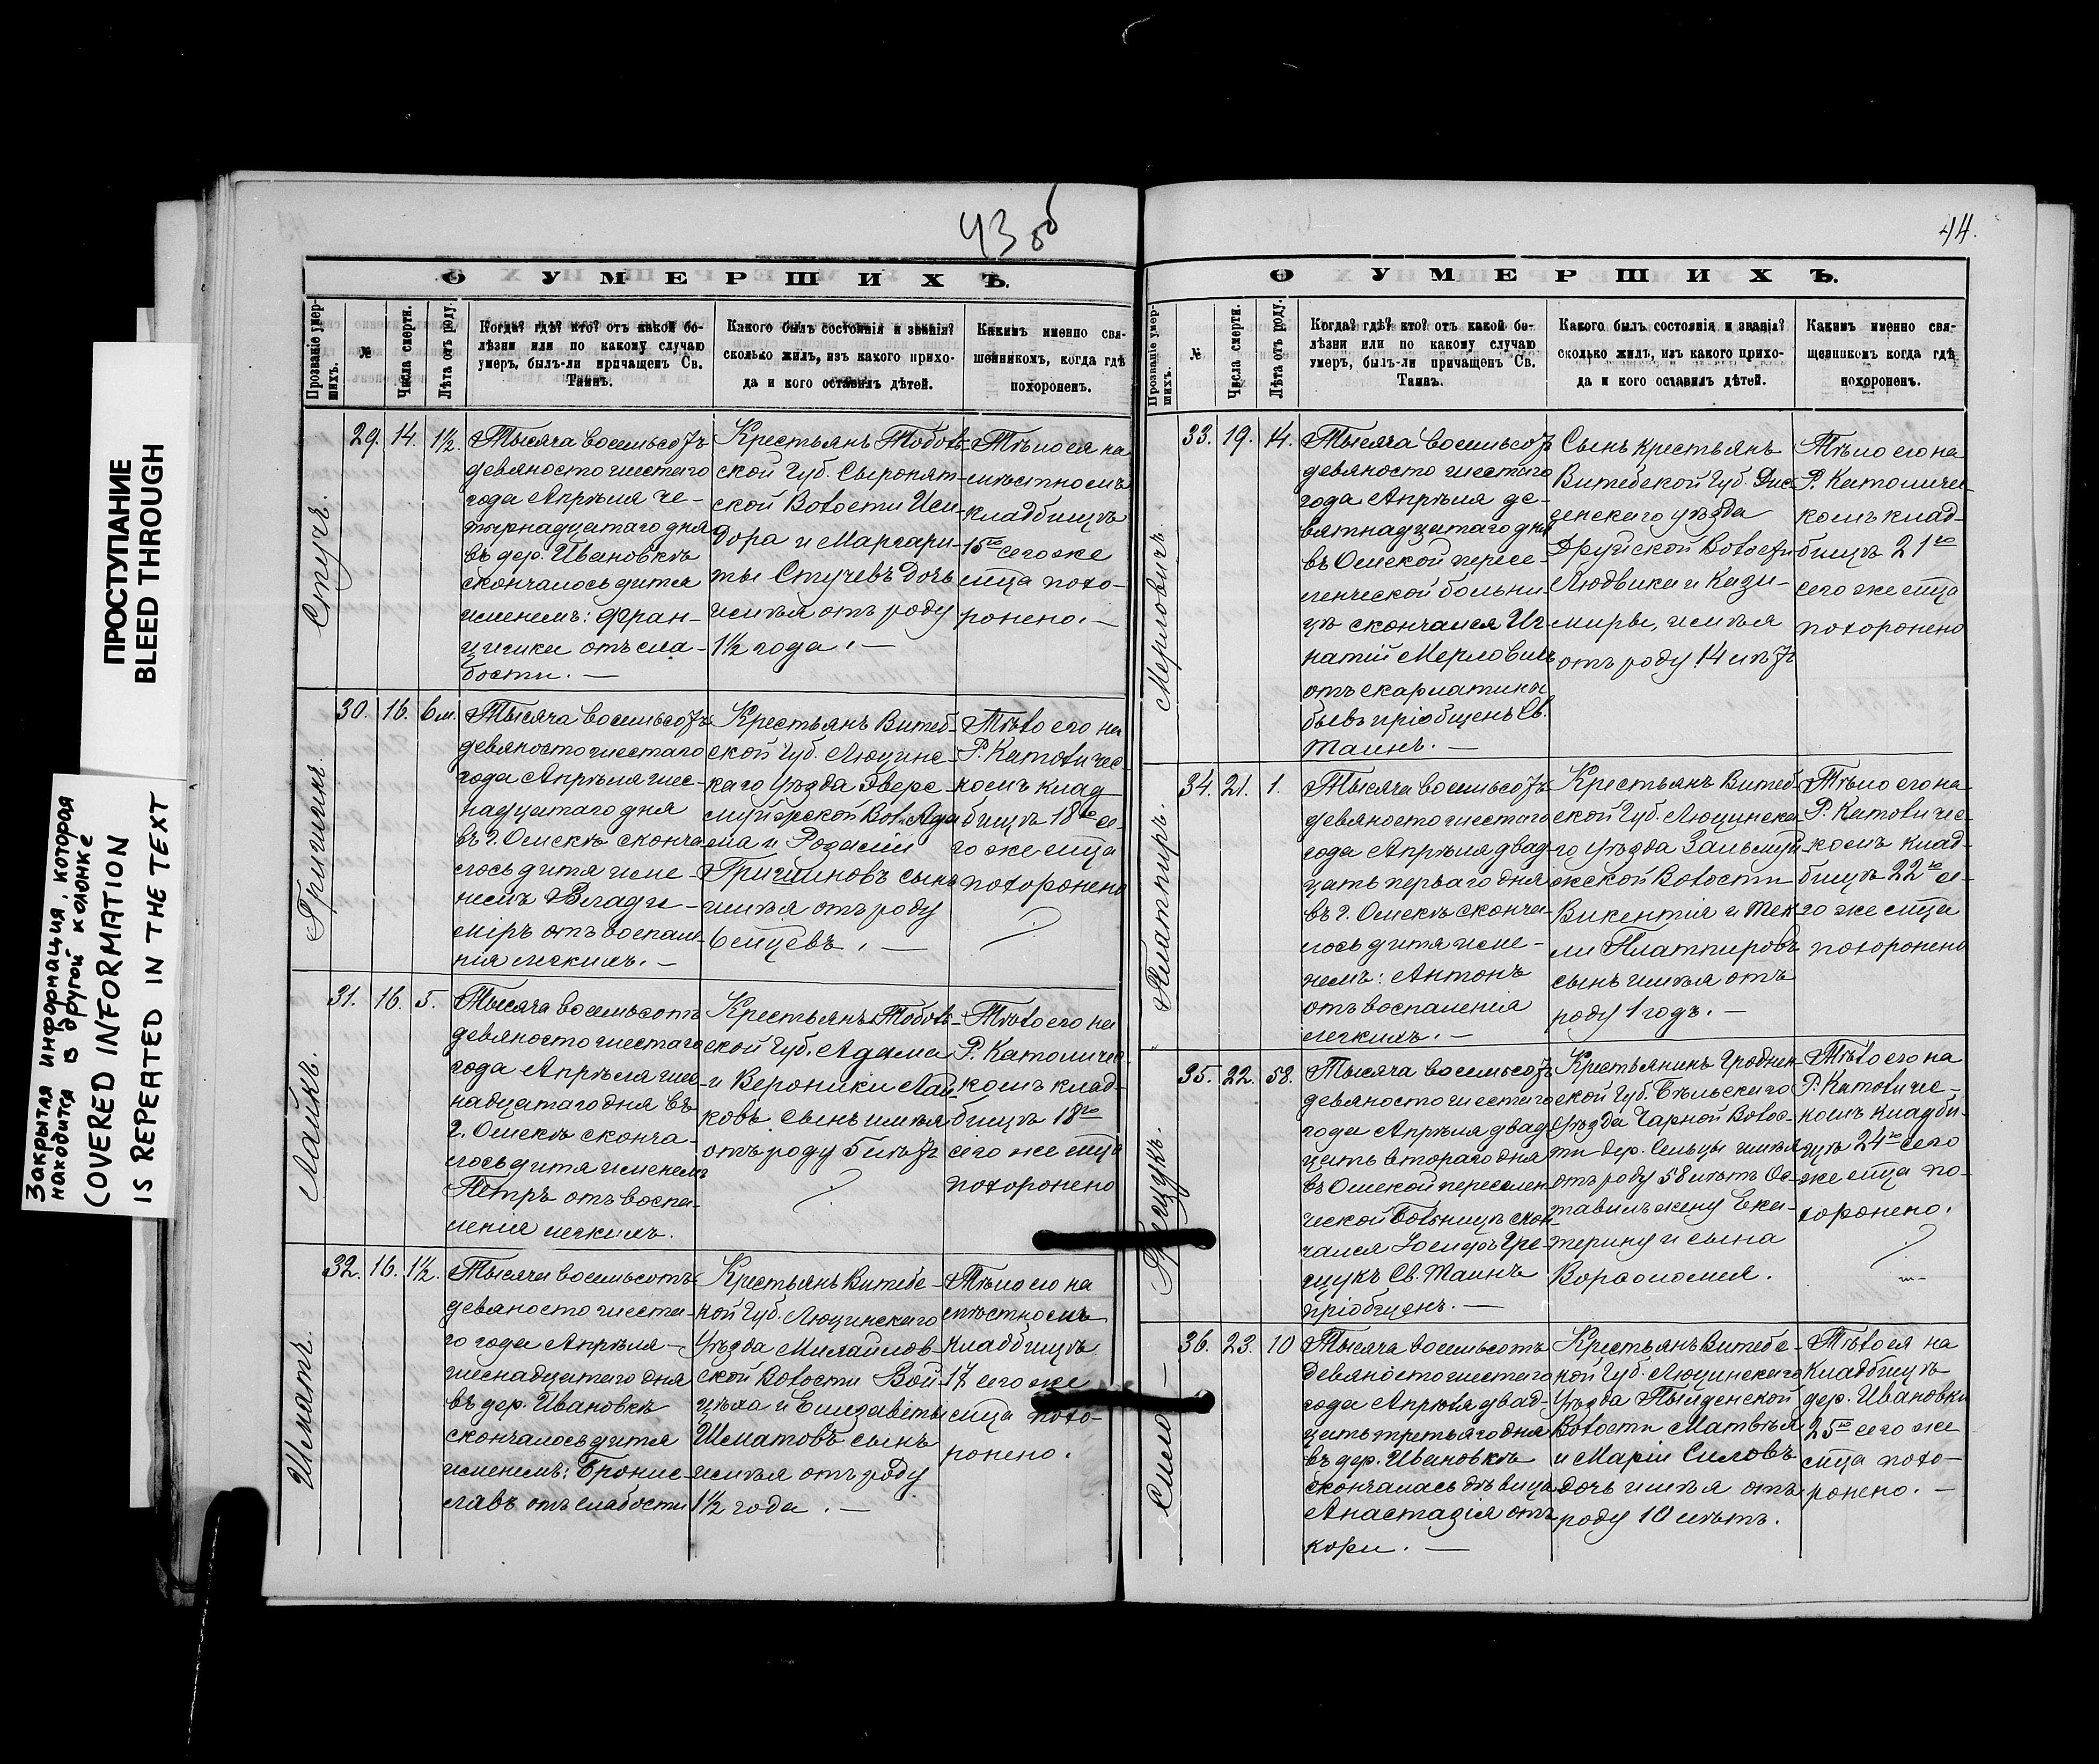 Закрытая информация, которая
находится в другой колонке
COVERED INFORMATION
IS REPEATED IN THE TEXT
ПРОСТУПАНИЕ
BLEED THROUGH
43 об
Ѳ УМЕРШИХЪ.
Прозваніе умер-
шихъ.
№
Числа смерти.
Лѣта отъ роду.
Когда? гдѣ? кто? отъ какой бо-
лѣзни или по какому случаю
умеръ, былъ-ли причащенъ Св.
Таинъ.
Какого былъ состоянія и званія?
сколько жилъ, изъ какого прихо-
да и кого оставилъ дѣтей.
Какимъ именно свя-
щенникомъ, когда гдѣ
похороненъ.
Стучъ.
29. 14. 1½.
Тысяча восемьсотъ
девяносто шестаго
года Апрѣля че-
тырнадцатаго дня
въ дер. Ивановкѣ
скончалось дитя
именемъ: Фран-
цишки отъ сла-
бости. —
Крестьянъ Тоболь-
ской Губ. Сыропят-
ской Волости Иси-
дора и Маргари-
ты Стучевъ дочь
имѣя отъ роду
1½ года. —
Тѣло ея на
мѣстномъ
кладбищѣ
15го сего же
мца похо-
ронено. —
Гришинъ.
30. 16. 6 м.
Тысяча восемьсотъ
девяносто шестаго
года Апрѣля шес-
надцатаго дня
въ г. Омскѣ сконча-
лось дитя име-
немъ Влади-
міръ отъ воспале-
нія легкихъ. —
Крестьянъ Витеб-
ской Губ. Люцинс-
каго Уѣзда Эверс-
муйжской Вол. Ада-
ма и Розаліи
Гришиновъ сынъ
имѣя отъ роду
6 мцевъ. —
Тѣло его на
Р. Католичес-
комъ клад
бищѣ 18го се-
го же мца
похоронено
Лайкъ.
31. 16. 5.
Тысяча восемьсотъ
девяносто шестаго
года Апрѣля шес-
надцатаго дня въ
г. Омскѣ сконча-
лось дитя именемъ
Петръ отъ воспа-
ленія легкихъ.
Крестьянъ Тоболь-
ской Губ. Адама
и Вероники Лай-
ковъ сынъ имѣя
отъ роду 5 лѣтъ
Тѣло его на
Р. Католичес-
комъ клад-
бищѣ 18го
сего же мца
похоронено
Шматъ.
32. 16. 1½.
Тысяча восемьсотъ
девяносто шеста-
го года Апрѣля —
шеснадцатаго дня
въ дер. Ивановкѣ
скончалось дитя
именемъ: Бронис-
лавъ отъ слабости
Крестьянъ Витебс-
кой Губ. Люцинскаго
Уѣзда Михайлов-
ской Волости Вой-
цѣха и Елизаветы
Шматовъ сынъ
имѣя отъ роду
1½ года. —
Тѣло его на
мѣстномъ
кладбищѣ
17 сего же
мца похо-
ронено.
44.
Ѳ УМЕРШИХЪ.
Прозваніе умер-
шихъ.
№
Числа смерти.
Лѣта отъ роду.
Когда? гдѣ? кто? отъ какой бо-
лѣзни или по какому случаю
умеръ, былъ-ли причащенъ Св.
Таинъ.
Какого былъ состоянія и званія?
сколько жилъ, изъ какого прихо-
да и кого оставилъ дѣтей.
Какимъ именно свя-
щенникомъ когда гдѣ
похороненъ.
Мерловичъ.
33. 19. 14.
Тысяча восемьсотъ
девяносто шестаго
года Апрѣля де-
вятнадцатаго дня
въ Омской пересе-
ленческой больни-
цѣ скончался Иг-
натій Мерловичъ
отъ скарлатины
бывъ пріобщенъ Св.
Таинъ. —
Сынъ крестьянъ
Витебской Губ. Дис-
ненскаго уѣзда
Друйской Волости
Людвика и Кази-
миры, имѣя
отъ роду 14 лѣтъ
Тѣло его на
Р. Католичес-
комъ клад-
бищѣ 21го
сего же мца
похоронено
Платпиръ.
34. 21. 1.
Тысяча восемьсотъ
девяносто шестаго
года Апрѣля двад-
цать перваго дня
въ г. Омскѣ сконча-
лось дитя име-
немъ: Антонъ
отъ воспаленія
легкихъ. —
Крестьянъ Витеб-
ской Губ. Люцинска-
го Уѣзда Зальмуй-
жской Волости
Викентія и Тек-
ли Платпировъ
сынъ имѣя отъ
роду 1 годъ. —
Тѣло его на
Р. Католичес-
комъ клад-
бищѣ 22го се-
го же мца
похоронено
Грещукъ.
35. 22. 58.
Тысяча восемьсотъ
девяносто шестаго
года Апрѣля двад
цать втораго дня
въ Омской переселен
ческой Больницѣ скон-
чался Іосифъ Гре-
щукъ Св. Таинъ
пріобщенъ. —
Крестьянинъ Гроднен-
ской Губ. Бѣльскаго
Уѣзда Чарной Волос-
ти дер. Сельцы имѣя
отъ роду 58 лѣтъ Ос-
тавилъ жену Ека-
терину и сына
Ворѳоломея.
Тѣло его на
Р. Католичес-
комъ кладби-
щѣ 24го сего
же мца по-
хоронено.
Сило —
36. 23. 10
Тысяча восемьсотъ
девяносто шестаго
года Апрѣля двад-
цать третьяго дня
въ дер. Ивановкѣ
скончалась дѣвица
Анастазія отъ
кори. —
Крестьянъ Витебс-
кой Губ. Люцинскаго
Уѣзда Пыйденской
Волости Матвѣя
и Маріи Силовъ
дочь имѣя отъ
роду 10 лѣтъ.
Тѣло ея на
Кладбищѣ
дер. Ивановки
25го сего же
мца похо-
ронено. —